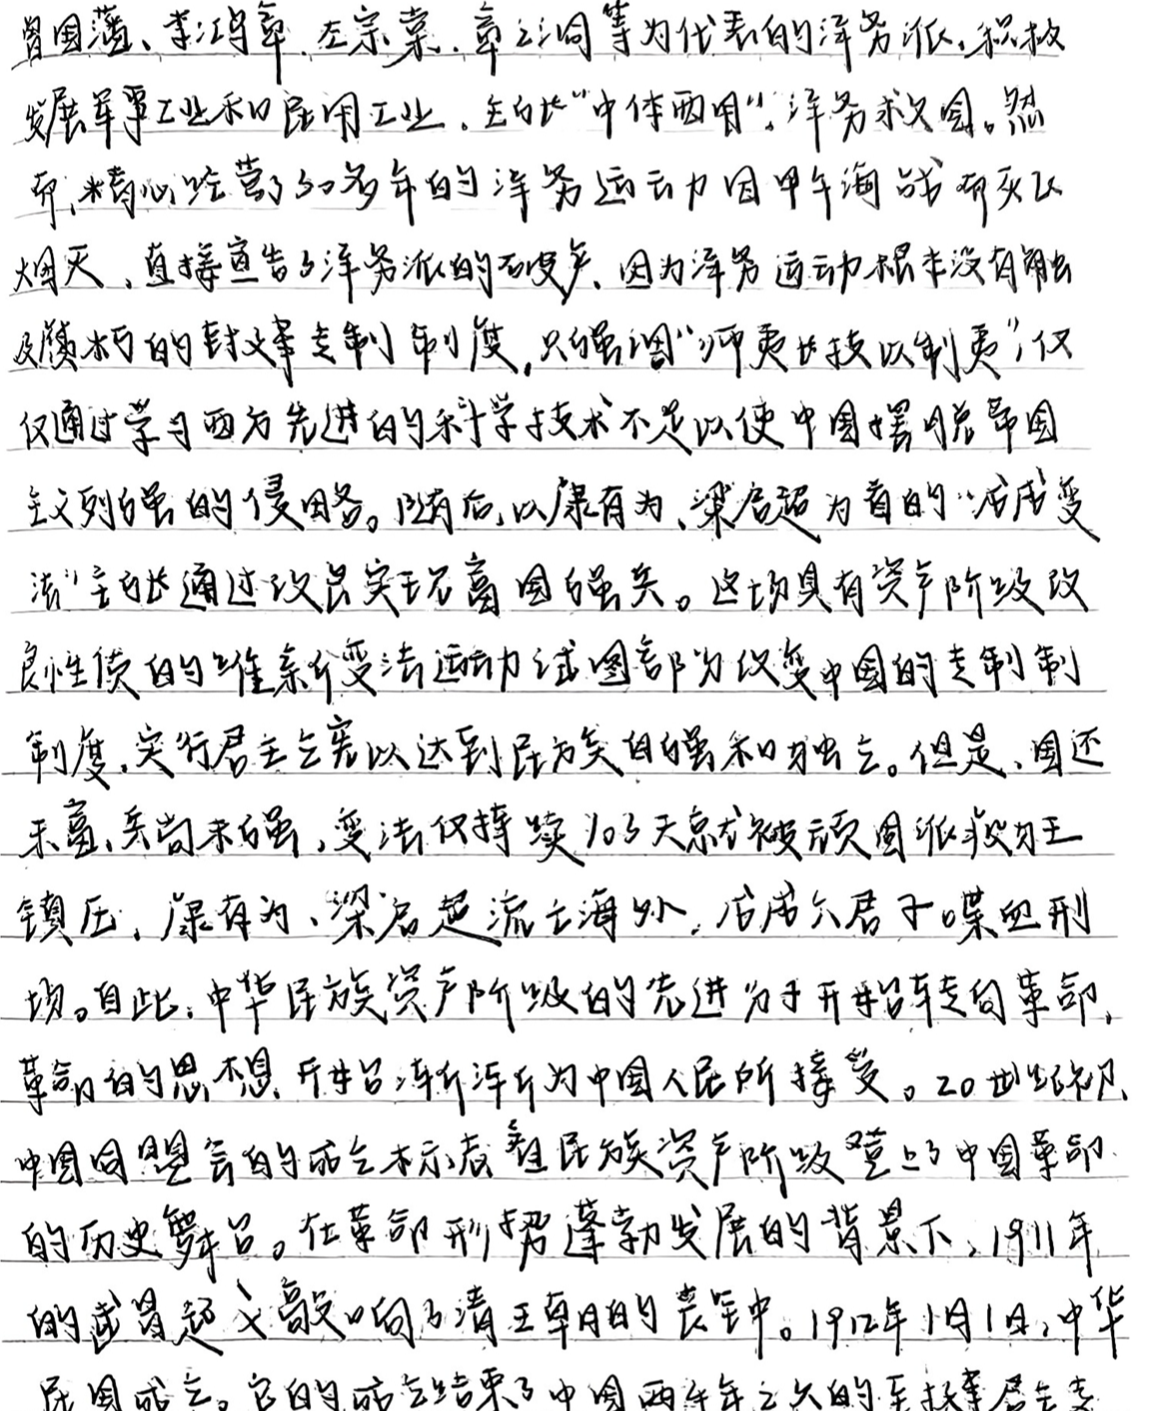 曾国藩、李鸿章、左宗棠、章之洞等为代表的洋务派，积极
发展军事工业和民用工业，主张“中体西用”，洋务救国。然
而，精心经营了30多年的洋务运动因甲午海战而灰飞
烟灭，直接宣告了洋务派的破产，因为洋务运动根本没有触
及腐朽的封建专制制度，只强调“师夷长技以制夷”，仅
仅通过学习西方先进的科学技术不足以使中国摆脱帝国
主义列强的侵略。随后，以康有为、梁启超为首的“戊戌变
法”主张通过改良实现富国强兵。这场具有资产阶级改
良性质的维新变法运动试图部分改变中国的专制制
制度，实行君主立宪以达到民族自强和独立。但是，国还
未富，兵尚未强，变法仅持续103天就被顽固派
镇压，康有为、梁启超流亡海外，戊戌六君子喋血刑
场。自此，中华民族资产阶级的先进分子开始转走向革命，
革命的思想开始渐渐为中国人民所接受。20世纪初，
中国同盟会的成立标志着民族资产阶级登上了中国革命
的历史舞台。在革命形势蓬勃发展的背景下，1911年
的武昌起义敲响了清王朝的丧钟。1912年1月1日，中华
民国成立。它的成立结束了中国两千年之久的封建君主专